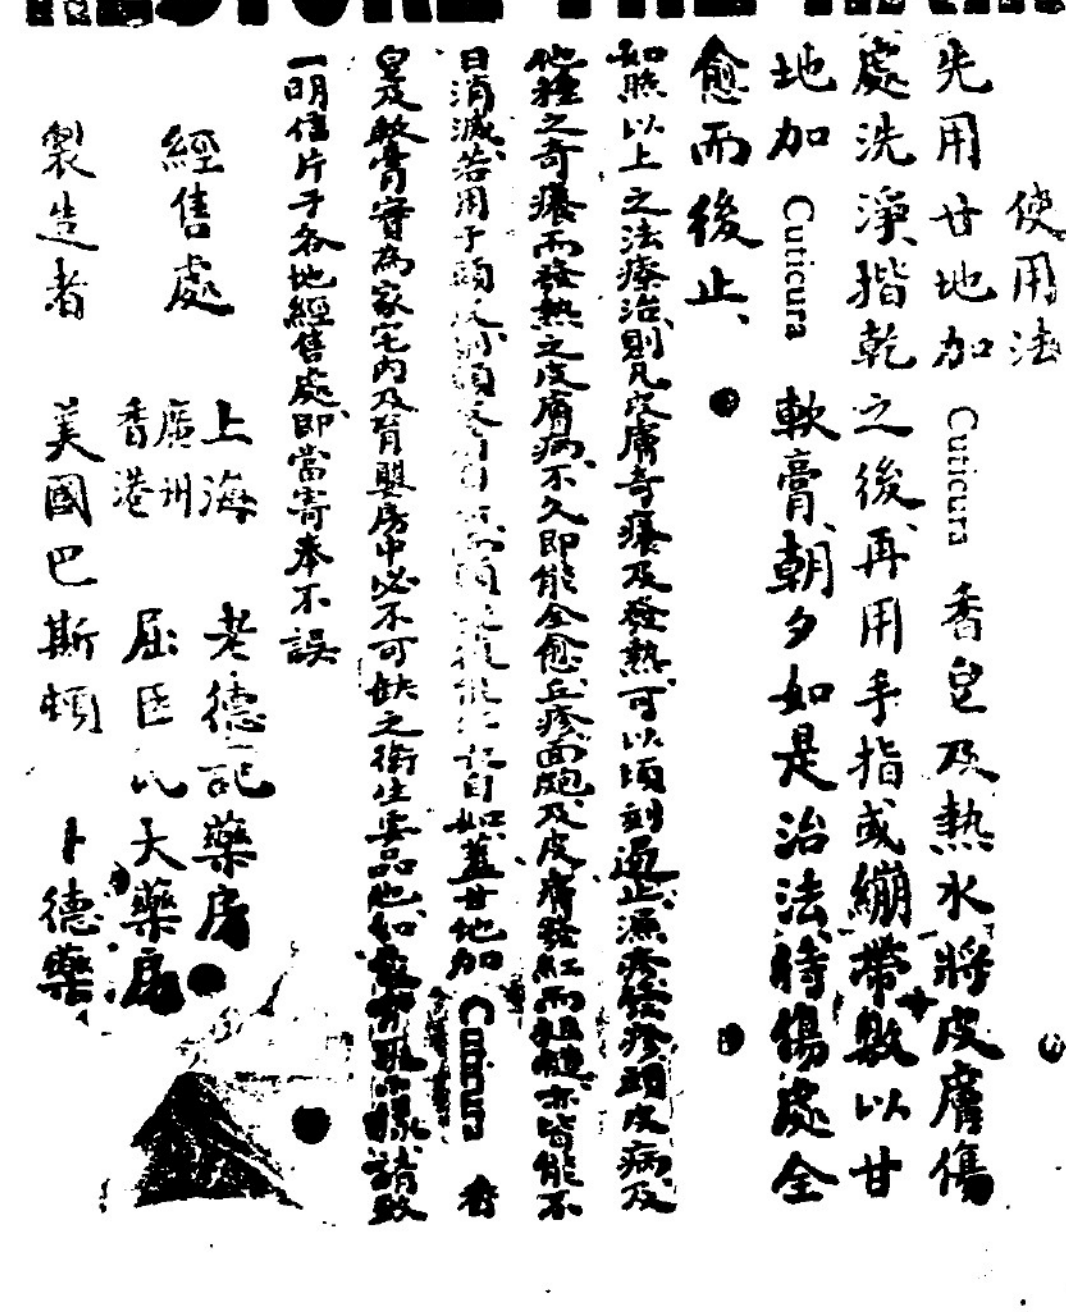 使用法
先用甘地加 Cuticura 香皂及熱水將皮膚傷
處洗淨、揩乾之後、再用手指或繃帶敷以甘
地加 Cuticura 軟膏、朝夕如是治法、待傷處全
愈而後止、
如照以上之法療治、則凡皮膚奇癢及發熱、可以頃刻遏止、濕疹、發疹、頭皮病、及
他種之奇癢而發熱之皮膚病、不久即能全愈、丘疹、面皰、及皮膚發紅而粗糙、亦皆能不
日消滅、若用于頭皮 自如、蓋甘地加 Cuticura 香
皂及軟膏、實為家宅內及育嬰房中必不可缺之衛生要品也、如 請致
一明信片于各地經售處、即當寄奉不誤
經售處
上海 老德記藥房
廣州
香港 屈臣氏大藥房
製造者 美國巴斯頓 卜德藥